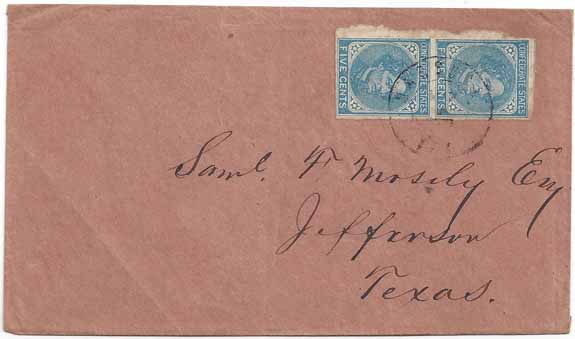 CONFEDERATE STATES
FIVE CENTS
CONFEDERATE STATES
FIVE CENTS
Saml. F Mosely Esq
Jefferson
Texas.